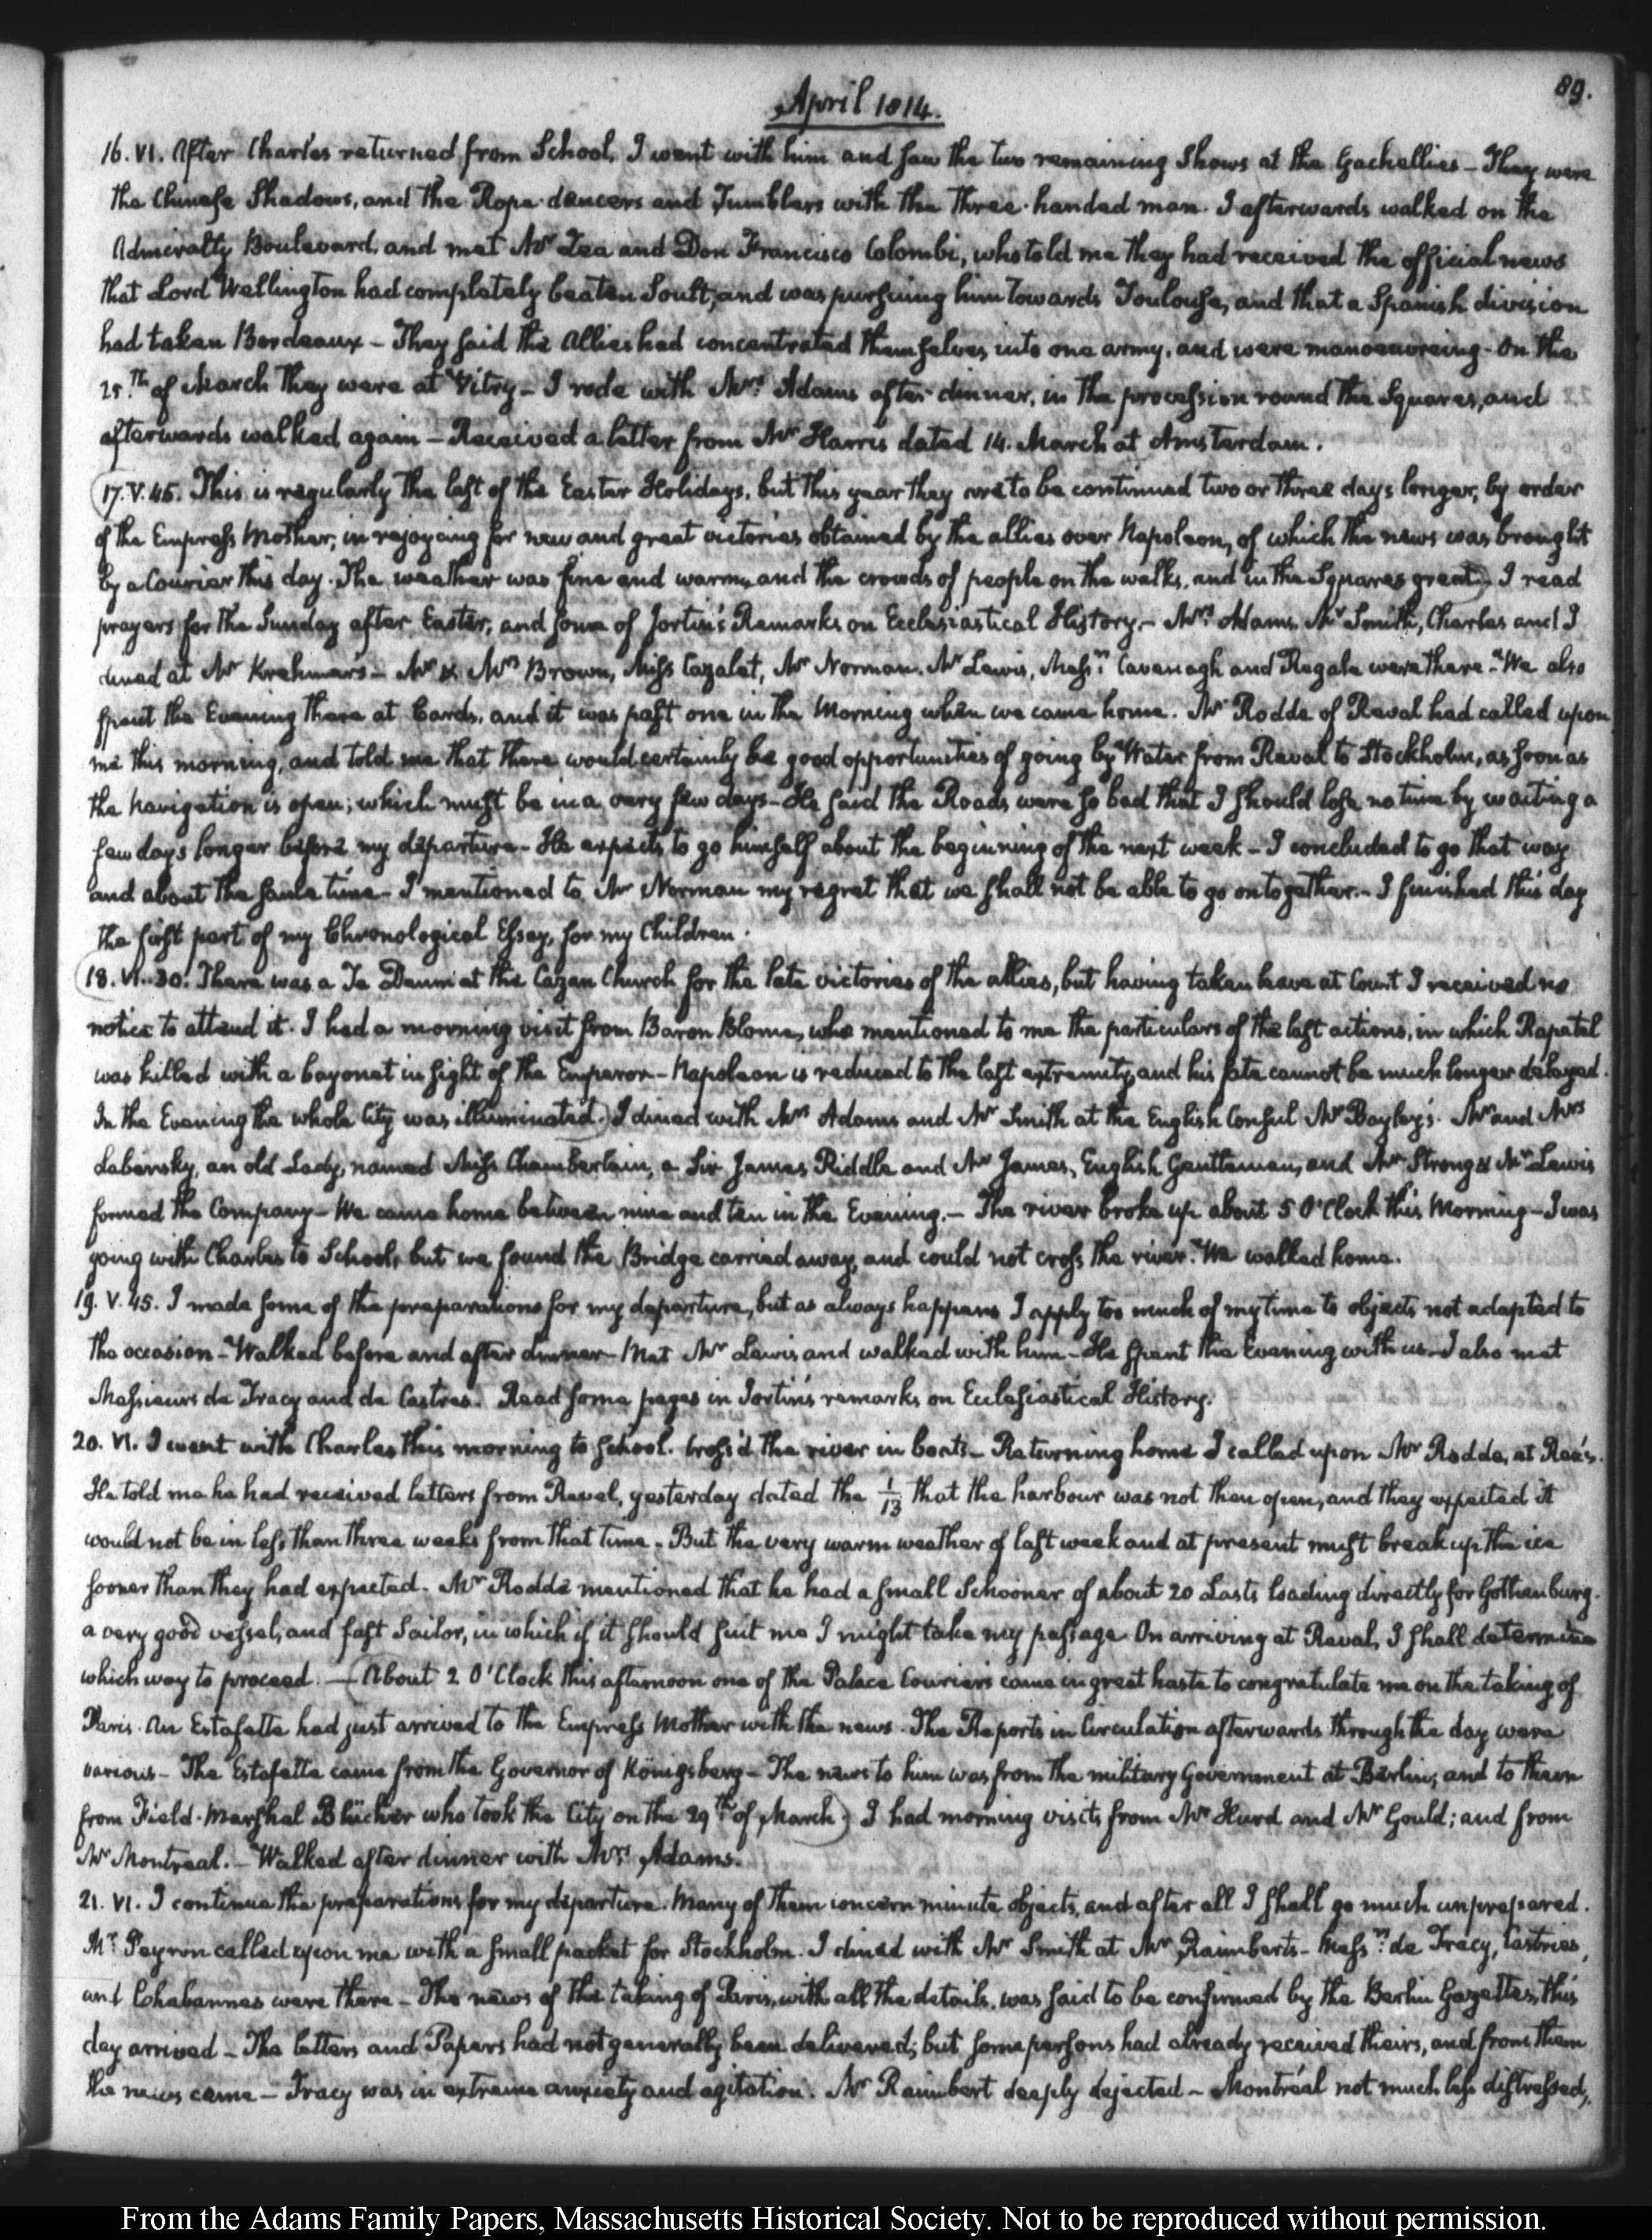 89.
April 1814.
16. VI. After Charles returned from School, I went with him and saw the two remaining Shows at the Gachellies – They were
the Chinese Shadows, and the Rope-dancers and Tumblers with the three-handed man. I afterwards walked on the
Admiralty Boulevard, and met Mr Zea and Don Francisco Colombi, who told me they had received the official news
that Lord Wellington had completely beaten Soult, and was pursuing him towards Toulouse, and that a Spanish division
had taken Bordeaux – They said the Allies had concentrated themselves into one army, and were manoeuvreing – On the
25th of March they were at Vitry – I rode with Mrs Adams after dinner, in the procession round the Squares, and
afterwards walked again – Received a letter from Mr Harris dated 14. March at Amsterdam.
17. V. 45. This is regularly the last of the Easter Holidays, but this year they are to be continued two or three days longer, by order
of the Empress Mother, in rejoycing for new and great victories obtained by the allies over Napoleon, of which the news was brought
by a Courier this day. The weather was fine and warm, and the crowds of people on the walks, and in the Squares great) I read
prayers for the Sunday after Easter, and some of Jortin's Remarks on Ecclesiastical History. – Mrs Adams, Mr Smith, Charles and I
dined at Mr Krehmer's – Mr & Mrs Brown, Miss Cazalet, Mr Norman, Mr Lewis, Messrs Cavenagh and Regale were there – We also
spent the Evening there at Cards, and it was past one in the Morning when we came home. Mr Rodde of Reval had called upon
me this morning, and told me that there would certainly be good opportunities of going by Water from Reval to Stockholm, as soon as
the navigation is open; which must be in a very few days – He said the Roads were so bad that I should lose no time by waiting a
few days longer before my departure – He expects to go himself about the beginning of the next week – I concluded to go that way
and about the same time – I mentioned to Mr Norman my regret that we shall not be able to go on together. – I finished this day
the first part of my Chronological Essay, for my Children.
18. VI. 30. There was a Te Deum at the Cazan Church for the late victories of the allies, but having taken leave at Court I received no
notice to attend it. I had a morning visit from Baron Blome, who mentioned to me the particulars of the last actions, in which Rapatel
was killed with a bayonet in sight of the Emperor – Napoleon is reduced to the last extremity, and his fate cannot be much longer delayed.
In the Evening the whole City was illuminated.) I dined with Mrs Adams and Mr Smith at the English Consul Mr Bayley's. Mr and Mrs
Labensky, an old Lady, named Miss Chamberlain, a Sir James Riddle and Mr James, English Gentlemen, and Mr Strong & Mr Lewis
formed the Company – We came home between nine and ten in the Evening. – The river broke up about 5 O'Clock this Morning – I was
going with Charles to School, but we found the Bridge carried away, and could not cross the river. We walked home.
19. V. 45. I made some of the preparations for my departure, but as always happens I apply too much of my time to objects not adapted to
the occasion – Walked before and after dinner – Met Mr Lewis and walked with him – He spent the Evening with us – I also met
Messieurs de Tracy and de Castres. Read some pages in Jortin's remarks on Ecclesiastical History.
20. VI. I went with Charles this morning to school. Cross'd the river in boats – Returning home I called upon Mr Rodde, at
He told me he had received letters from Reval, yesterday dated the 1/13 that the harbour was not then open, and they expected it
would not be in less than three weeks from that time. But the very warm weather of last week and at present must break up the ice
sooner than they had expected. Mr Rodde mentioned that he had a small Schooner of about 20 Lasts loading directly for Gothenburg.
a very good vessel, and fast Sailor, in which if it should suit me I might take my passage On arriving at Reval, I shall determine
which way to proceed. – (About 2 O'Clock this afternoon one of the Palace Couriers came in great haste to congratulate me on the taking of
Paris. An Estafette had just arrived to the Empress Mother with the news. The Reports in Circulation afterwards through the day were
various – The Estafette came from the Governor of Königsberg – The news to him was from the military Government at Berlin; and to them
from Field-Marshal Blücher who took the City on the 29th of March.) I had morning visits from Mr Hurd and Mr Gould; and from
Mr Montreal. – Walked after dinner with Mrs Adams.
21. VI. I continue the preparations for my departure. Many of them concern minute objects, and after all I shall go much unprepared.
Mr Peyron called upon me with a small packet for Stockholm. I dined with Mr Smith at Mr Raimbert's – Messrs de Tracy, Castries,
and Chabannes were there – The news of the taking of Paris, with all the details, was said to be confirmed by the Berlin Gazettes, this
day arrived – The letters and Papers had not generally been delivered; but some persons had already received theirs, and from them
the news came – Tracy was in extreme anxiety and agitation. Mr Raimbert deeply dejected – Montréal not much less distressed,
From the Adams Family Papers, Massachusetts Historical Society. Not to be reproduced without permission.